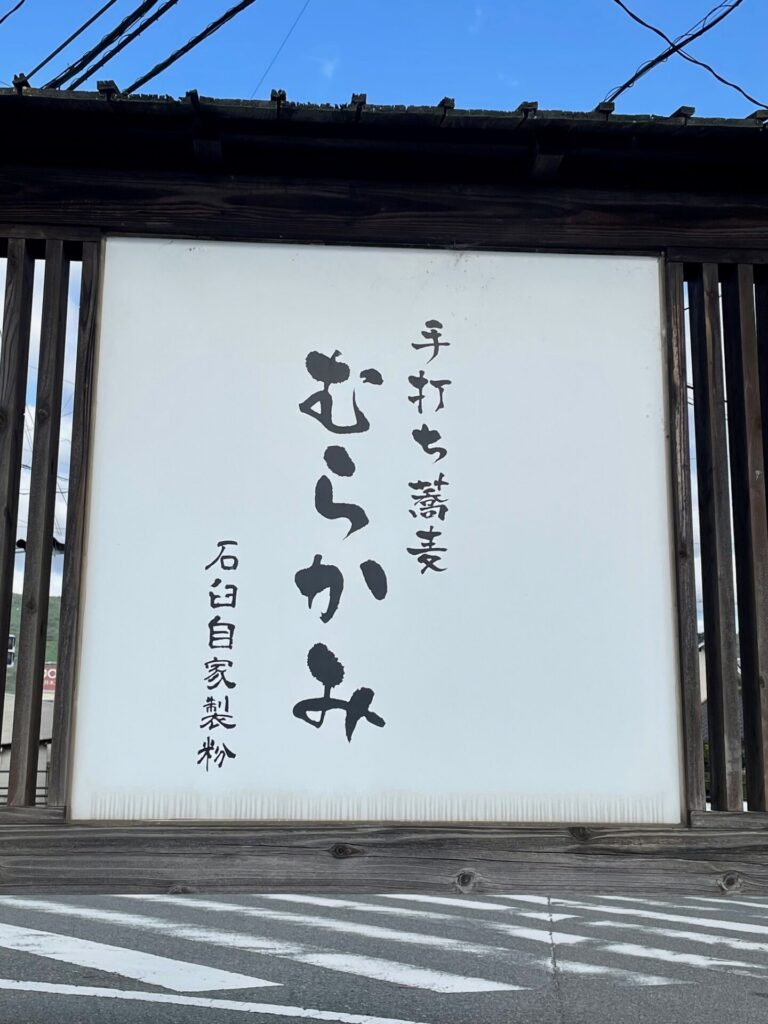 手打ち蕎麦
むらかみ
石臼自家製粉